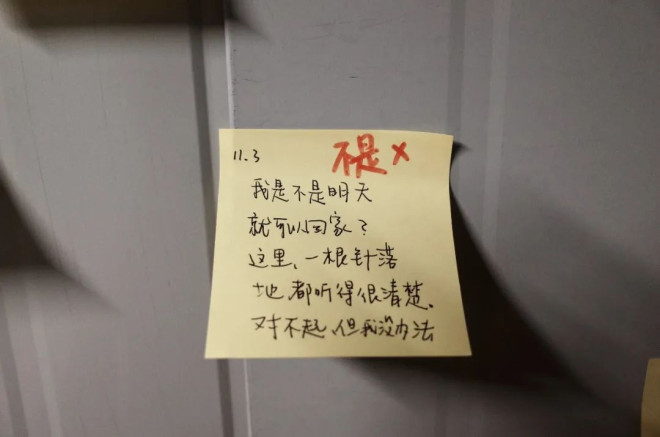 11.3 不是×
我是不是明天
就可以回家？
这里、一根针落
地都听得很清楚、
对不起、但我没办法